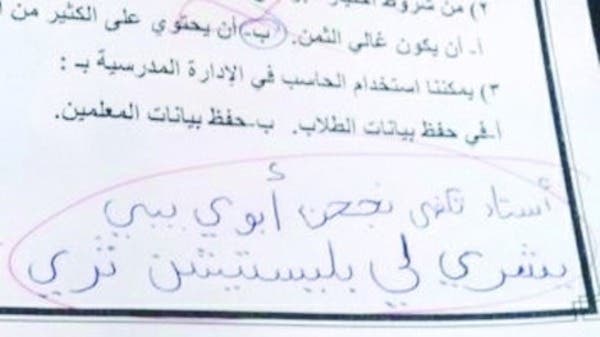 ٢) من شروط اختيار
أ- أن يكون غالي الثمن. ب- أن يحتوي على الكثير من
٣) يمكننا استخدام الحاسب في الإدارة المدرسية بـ :
أ-في حفظ بيانات الطلاب. ب-حفظ بيانات المعلمين.
أستاد تاضى نجحن أبوي يبي
يشري لي بليستيشن تري